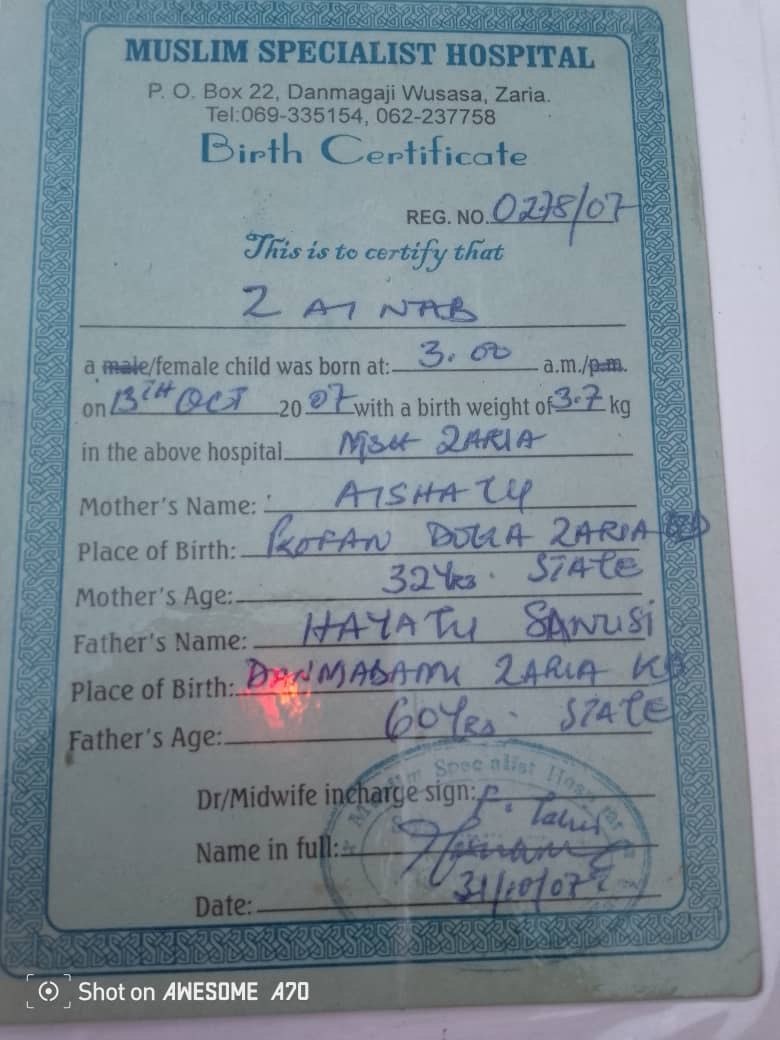 MUSLIM SPECIALIST HOSPITAL
P. O. Box 22, Danmagaji Wusasa, Zaria.
Tel:069-335154, 062-237758
Birth Certificate
REG. NO. 0278/07
This is to certify that
ZAINAB
a male/female child was born at: 3.00 a.m./p.m.
on 13TH OCT 2007 with a birth weight of 3.7 kg
in the above hospital MSH ZARIA
Mother's Name: AISHATU
Place of Birth: KOFAN DOKA ZARIA KD
Mother's Age: 32Yrs. STATE
Father's Name: HAYATU SANUSI
Place of Birth: DANMADAMI ZARIA KD
Father's Age: 60Yrs. STATE
Muslim Specialist Hospital
Dr/Midwife incharge sign:
Name in full:
Date: 31/10/07
Shot on AWESOME A70